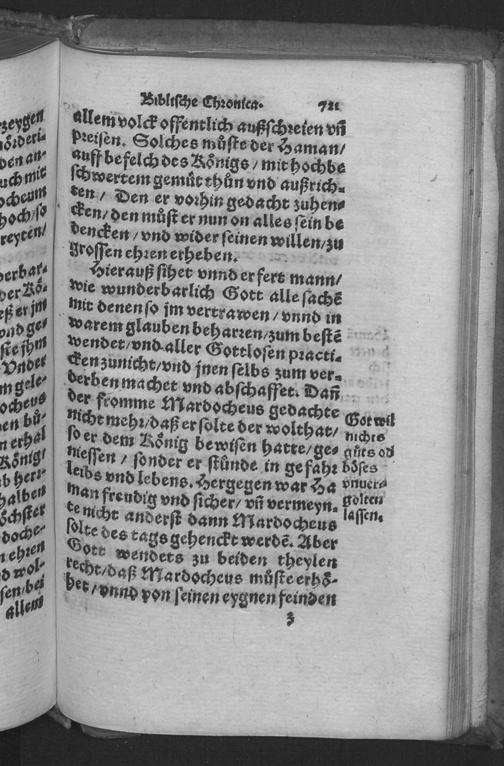 Biblische Chronica. 721
allem volck offentlich außschreien vñ
preisen. Solches můste der Haman/
auff befelch des Königs / mit hochbe
schwertem gemüt thůn vnd außrich-
ten / Den er vorhin gedacht zuhen-
cken / den můst er nun on alles sein be
dencken / vnd wider seinen willen / zu
grossen ehren erheben.
Hierauß sihet vnnd erfert mann/
wie wunderbarlich Gott alle sachē
mit denen so jm vertrawen / vnnd in
warem glauben beharren / zum bestē
wendet / vnd aller Gottlosen practi-
cken zunicht / vnd jnen selbs zum ver-
derben machet vnd abschaffet. Dañ
der fromme Mardocheus gedachte
nicht mehr / daß er solte der wolthat/
so er dem König bewisen hatte / ge-
niessen / sonder er stůnde in gefahr
leibs vnd lebens. Hergegen war Ha
man freudig vnd sicher / vñ vermeyn-
te nicht anderst dann Mardocheus
solte des tags gehenckt werdē. Aber
Gott wendets zu beiden theylen
recht / daß Mardocheus můste erhö-
het / vnnd von seinen eygnen feinden
z
Got wil
nichts
gůts od
böses
vnuer-
golten
lassen.
zeygen
den an-
uch mit
ocheum
hoch/so
reyten/
derbar-
der Kö-
eß er jm
vnd ge-
ste jhm
Vnder
m gele-
ocheus
en bü-
n erhal
König/
b herr-
halben
öchster
doche-
n ehren
d wol-
sen/bei
allem